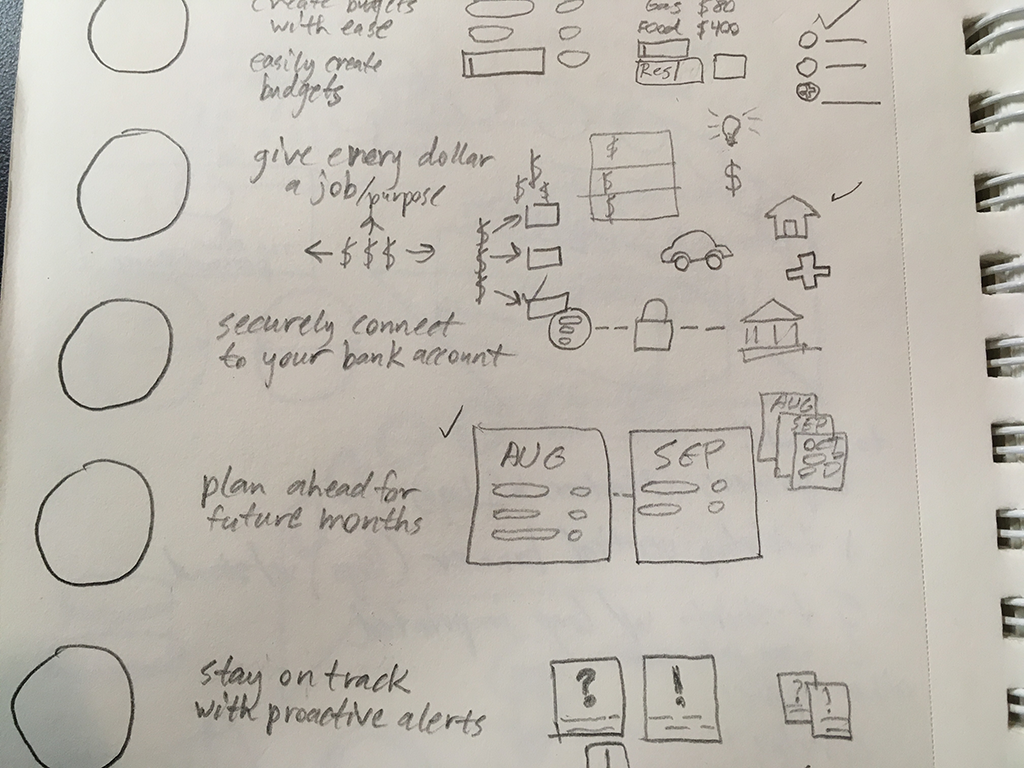 create budgets
with ease
easily create
budgets
Gas $80
Food $400
Rest
give every dollar
a job/purpose
← $ $ $ →
$
$ $
$
$
$
$
$
$
$
$
securely connect
to your bank account
plan ahead for
future months
AUG
SEP
AUG
SEP
OCT
stay on track
with proactive alerts
? !
? !
!